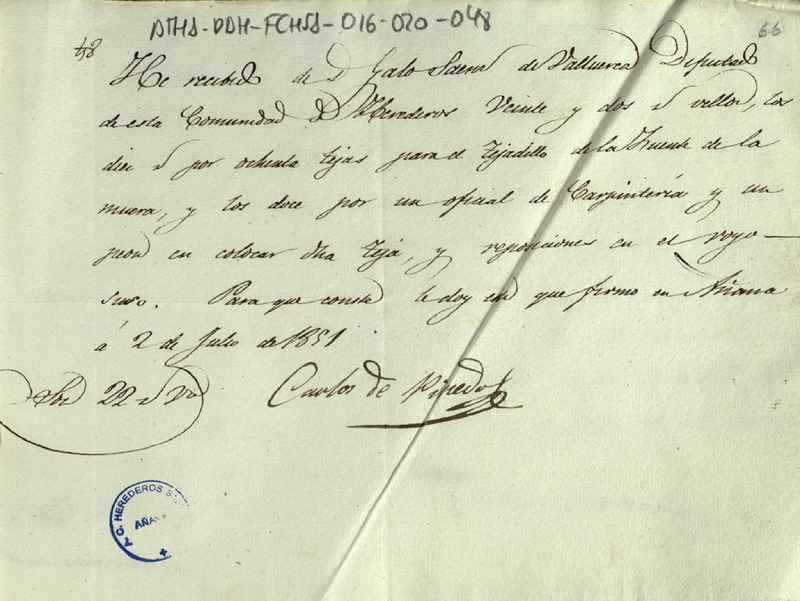 ATHA-DAH-FCHSA-016-020-048
66
48
He recibido de Dn Galo Saenz de Valluerca Diputado
de esta Comunidad de Herederos Veinte y dos rs vellon, los
diez rs por ochenta tejas para el tejadillo de la Fuente de la
muera, y los doce por un oficial de Carpintería y un
peon en colocar dha teja, y reposiciones en el royo
suso. Para que conste le doy este que firmo en Añana
á 2 de Julio de 1851
Son 22 rs vn
Carlos de Pinedo
C. HEREDEROS S
AÑA